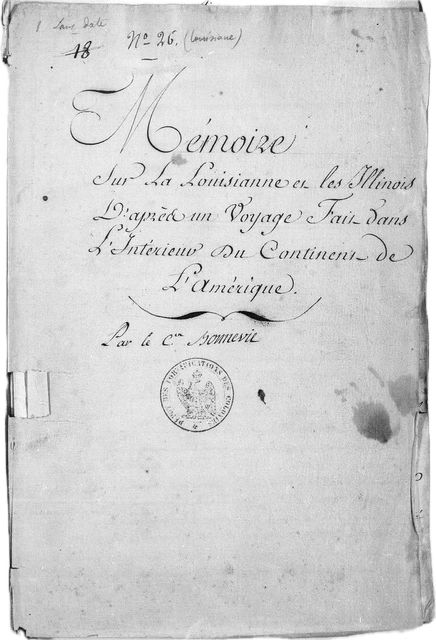 1 Sans date
18 Nº 26. (Louisiane)
Mémoire
Sur La Louisianne et les Illinois
D'après un Voyage Fait dans
L'Intérieur Du Continent de
L'Amérique.
Par le C.en Bonnevie
DÉPÔT DES FORTIFICATIONS DES COLONIES